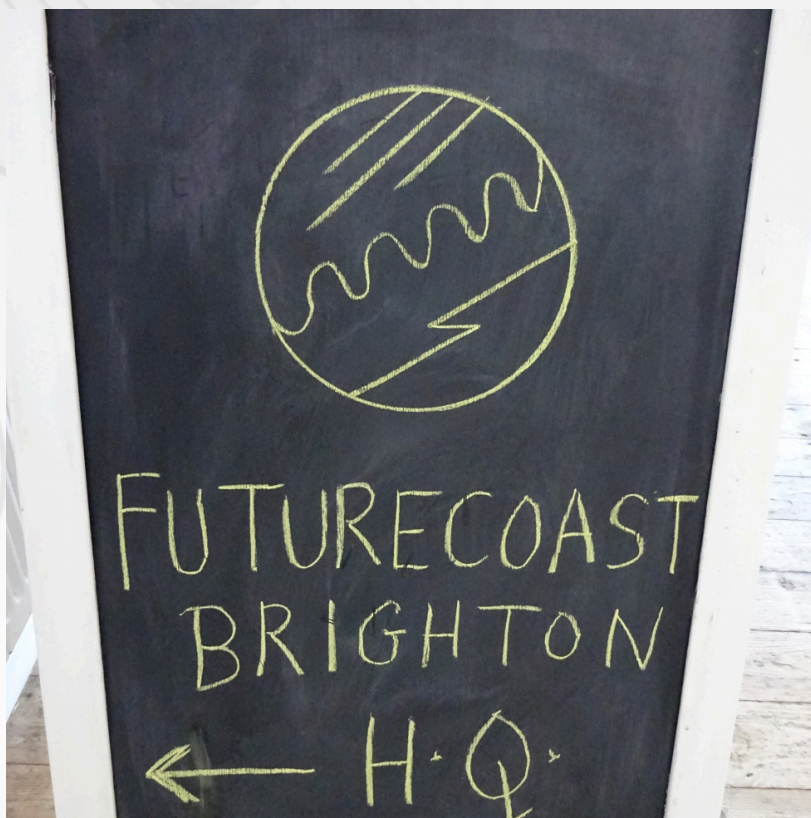 FUTURECOAST
BRIGHTON
← H.Q.